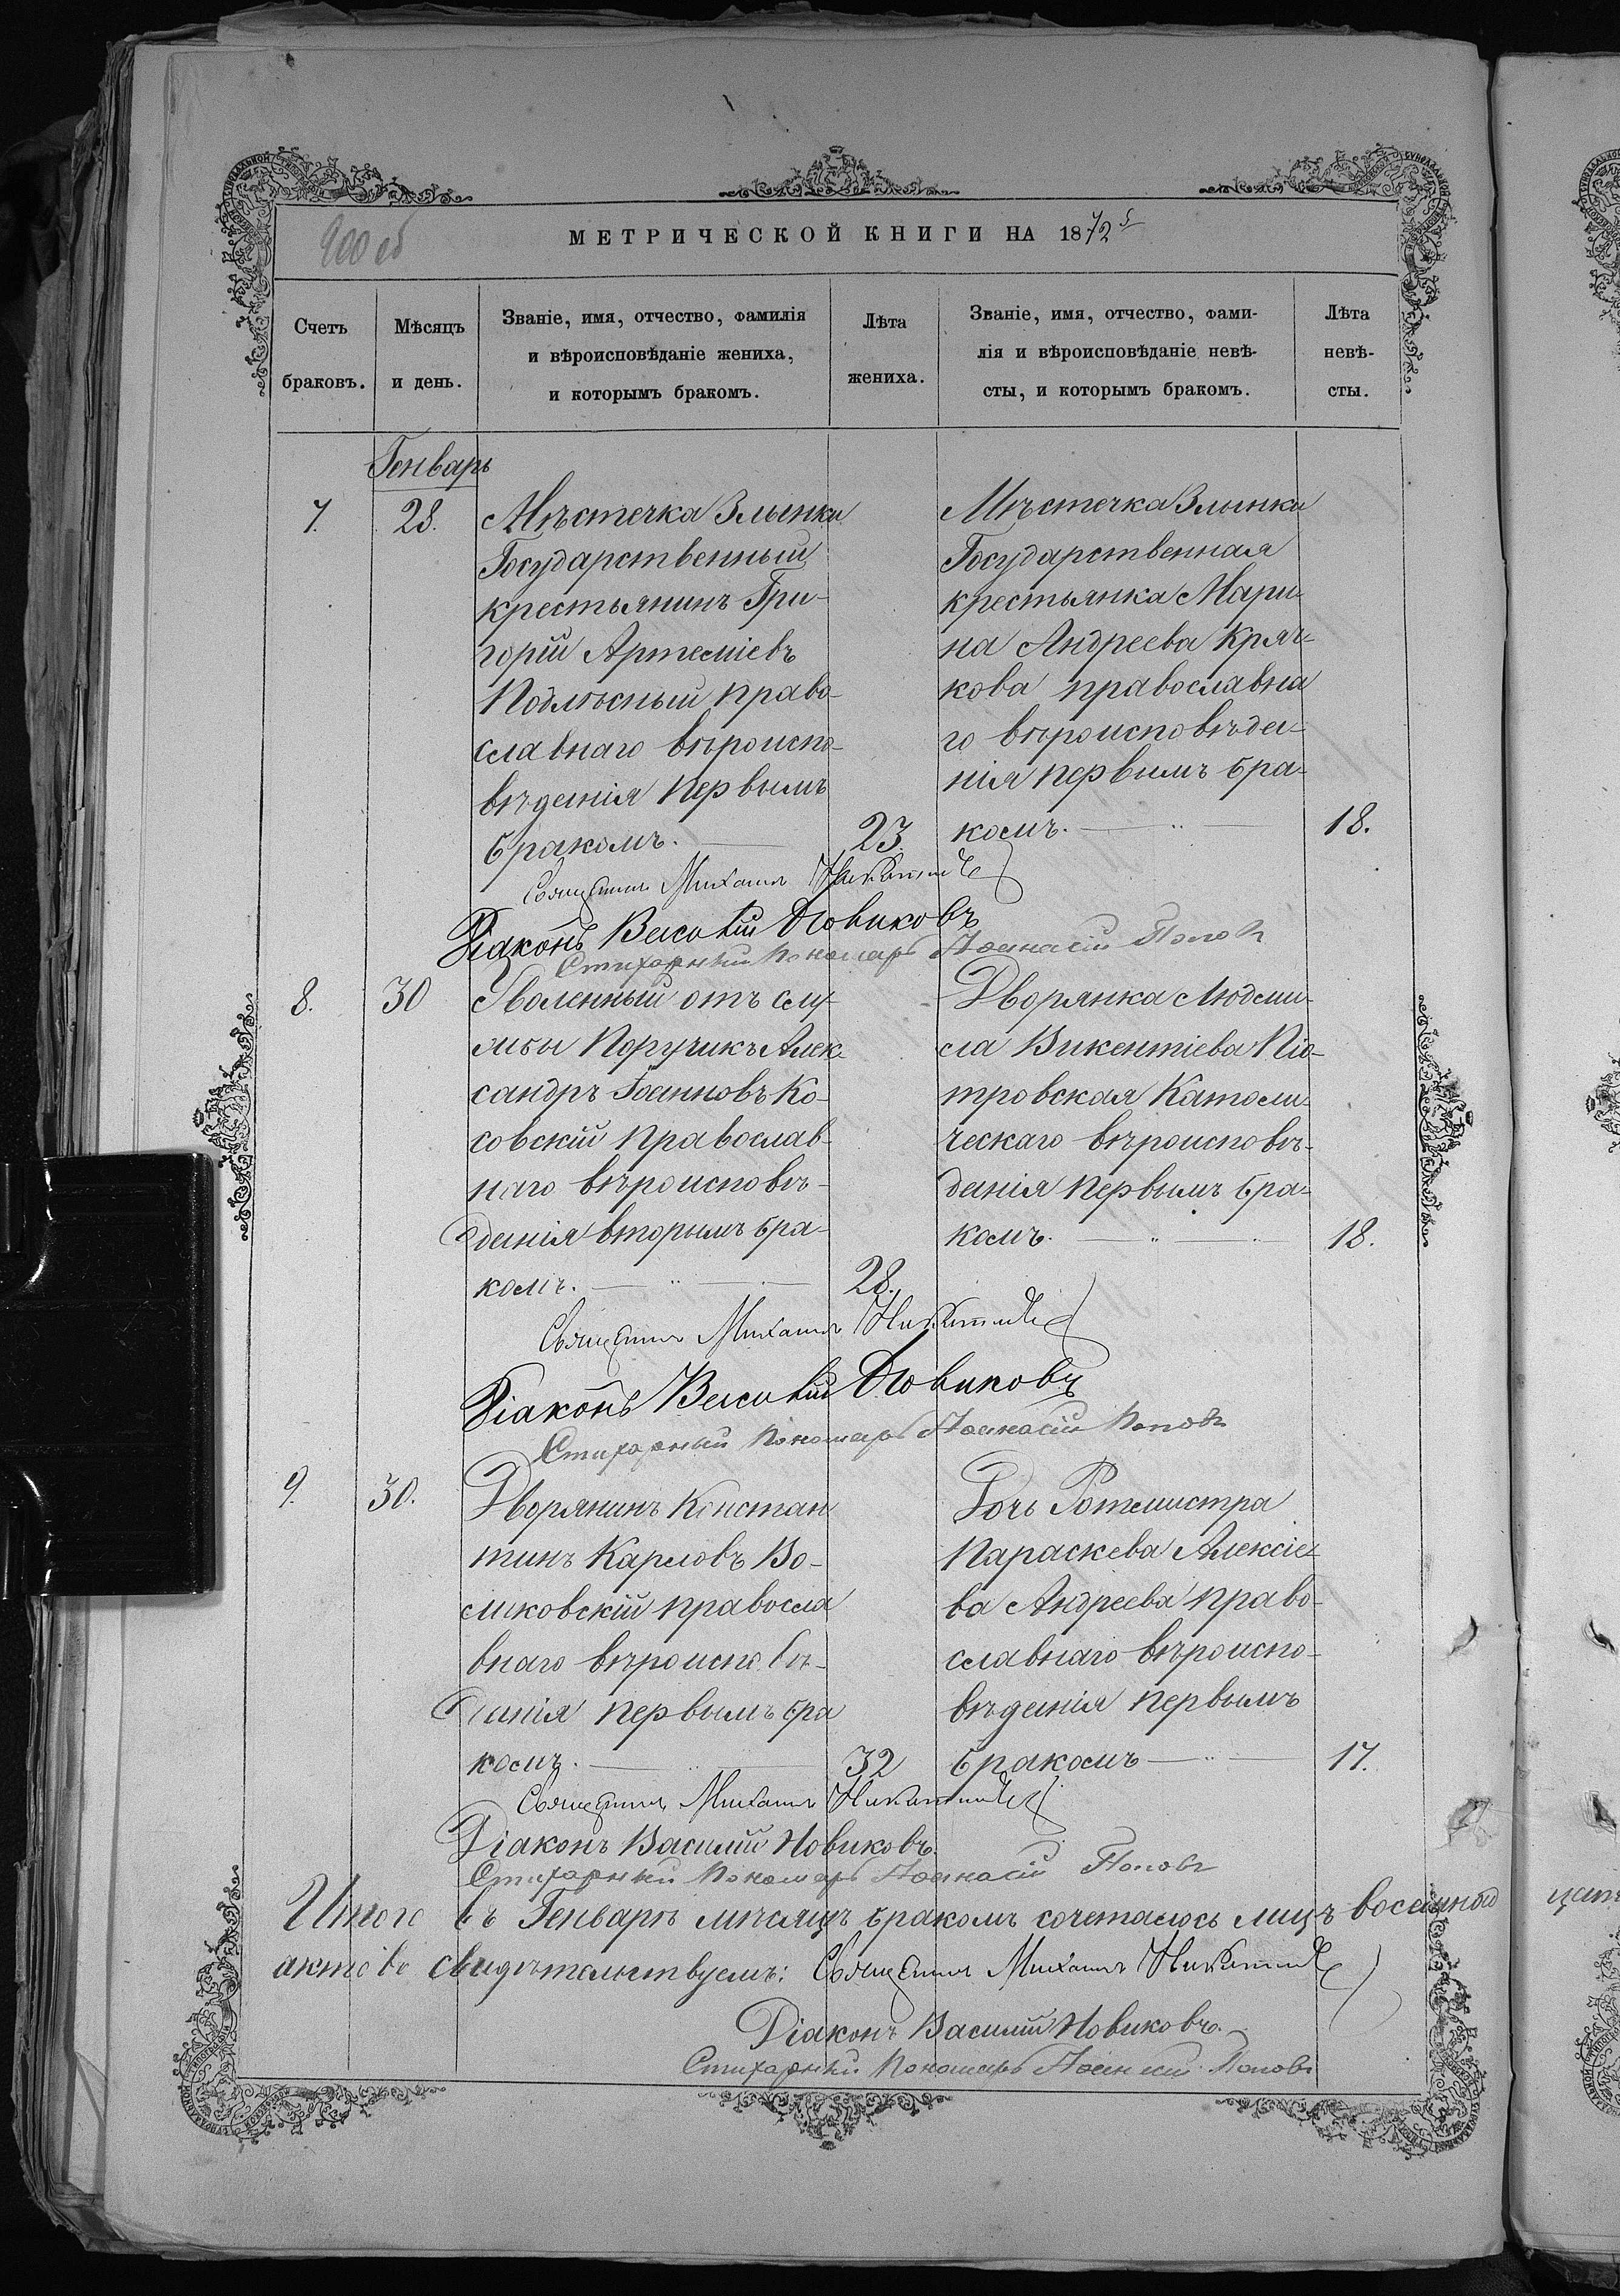 900 об
МЕТРИЧЕСКОЙ КНИГИ НА 1872
Счетъ браковъ.
Мѣсяцъ и день.
Званіе, имя, отчество, фамилія
и вѣроисповѣданіе жениха,
и которымъ бракомъ.
Лѣта жениха.
Званіе, имя, отчество, фами-
лія и вѣроисповѣданіе невѣ-
сты, и которымъ бракомъ.
Лѣта невѣ-
сты.
Генварь
7. 28.
Мѣстечка Злынки
Государственный
крестьянинъ Гри-
горій Артеміевъ
Подлѣсный право-
славнаго вѣроиспо-
вѣденія первымъ
бракомъ. 23.
Мѣстечка Злынки
Государственная
крестьянка Мари-
на Андреева Кряч-
кова православна
го вѣроисповѣде-
нія первымъ бра-
комъ. 18.
Священникъ Михаилъ
Діаконъ Василій Новиковъ
Стихарный Пономарь Аѳанасій Поповъ
8. 30
Уволенный отъ слу-
жбы Поручикъ Алек-
сандръ Іоанновъ Ко-
совскій православ-
наго вѣроисповѣ-
денія вторымъ бра-
комъ. 28.
Дворянка Людми-
ла Викентіева Піо-
тровская Католи-
ческаго вѣроисповѣ-
денія первымъ бра-
комъ. 18.
Священникъ Михаилъ
Діаконъ Василій Новиковъ
Стихарный Пономарь Аѳанасій Поповъ
9. 30.
Дворянинъ Констан
тинъ Карловъ Во-
ликовскій правосла
внаго вѣроисповѣ-
данія первымъ бра
комъ. 32
Дочь Ротмистра
Параскева Алексіе-
ва Андреева право-
славнаго вѣроиспо-
вѣденія первымъ
бракомъ 17.
Священникъ Михаилъ
Діаконъ Василій Новиковъ.
Стихарный Пономарь Аѳанасій Поповъ
Итого въ Генварѣ мѣсяцѣ бракомъ сочеталось лицъ
актовъ свидѣтельствуемъ: Священникъ Михаилъ
Діаконъ Василій Новиковъ.
Стихарный Пономарь Аѳанасій Поповъ